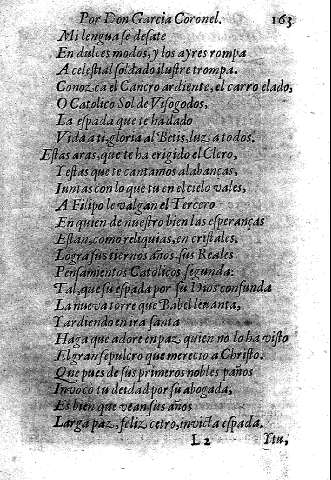 Por Don Garcia Coronel. 163
Mi lengua se desate
En dulces modos, y los ayres rompa
A celestial soldado ilustre trompa.
Conozca el Cancro ardiente, el carro elado,
O Catolico Sol de Visogodos,
La espada que te ha dado
Vida a ti, gloria al Betis, luz a todos.
Estas aras, que te ha erigido el Clero,
Y estas que te cantamos alabanças,
Iuntas con lo que tu en el cielo vales,
A Filipo le valgan el Tercero
En quien de nuestro bien las esperanças
Estan, como reliquias, en cristales,
Logra sus tiernos años, sus Reales
Pensamientos Catolicos segunda:
Tal, que su espada por su Dios confunda
La nueva torre que Babel levanta,
Y ardiendo en ira santa
Haga que adore en paz, quien no lo ha visto
El gran sepulcro que merecio a Christo.
Que pues de sus primeros nobles paños
Invocò tu deidad por su abogada,
Es bien que vean sus años
Larga paz, feliz cetro, invicta espada.
L 2 Ytu,